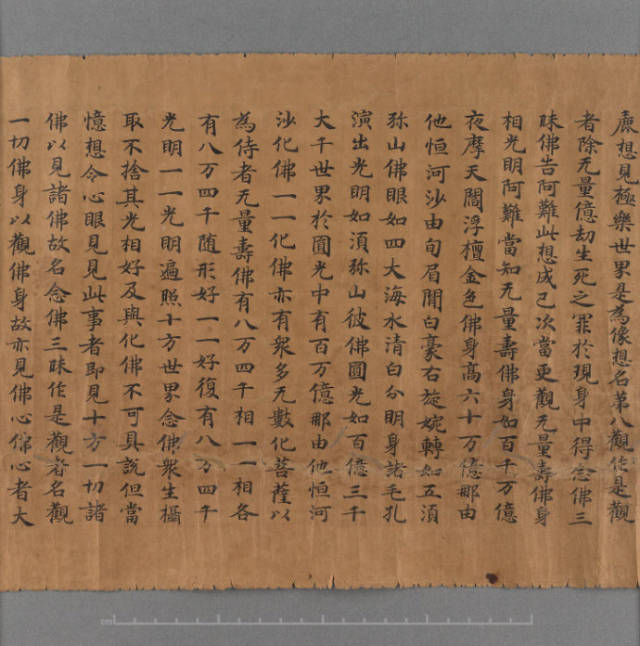 麁想見極樂世界是為像想名第八觀作是觀
者除无量億劫生死之罪於現身中得念佛三
昧佛告阿難此想成已次當更觀无量壽佛身
相光明阿難當知无量壽佛身如百千万億
夜摩天閻浮檀金色佛身高六十万億那由
他恒河沙由旬眉間白豪右旋婉轉如五湏
弥山佛眼如四大海水清白分明身諸毛孔
演出光明如湏弥山彼佛圓光如百億三千
大千世界於圓光中有百万億那由他恒河
沙化佛一一化佛亦有衆多无數化菩薩以
為侍者无量壽佛有八万四千相一一相各
有八万四千随形好一一好復有八万四千
光明一一光明遍照十方世界念佛衆生攝
取不捨其光相好及與化佛不可具說但當
憶想令心眼見見此事者即見十方一切諸
佛以見諸佛故名念佛三昧作是觀者名觀
一切佛身以觀佛身故亦見佛心佛心者大
cm